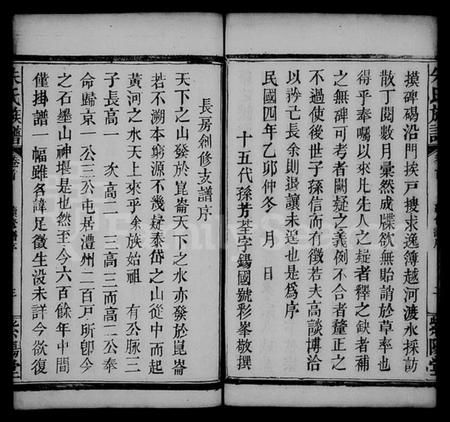 摸碑碣沿門挨戶搜求逸簿越河渡水採訪
散丁閱數月彙然成牒欲無貽誚於草率也
得乎奉囑以來凡先人之疑者釋之缺者補
之無碑可考者闕疑之義例不合者釐正之
不過使後世子孫信而有徵若夫高談博洽
以矜己長余則退讓未遑也是爲序
民國四年乙卯仲冬 月 日
十五代孫芳荃字錫國號彩峯敬撰
長房創修支譜序
天下之山發於崑崙天下之水亦發於崑崙
若不溯本窮源不幾疑泰岱之山從中而起
黄河之水天上來乎余族始祖 有公脈三
子長高一 次高二 三高三而高二公奉
命歸京一公三公屯居澧州二百戸所卽今
之石墨山神堪是也然至今六百餘年中間
僅掛譜一幅雖名諱足徵生殁未詳今欲復
朱氏族譜
卷首
紫陽堂